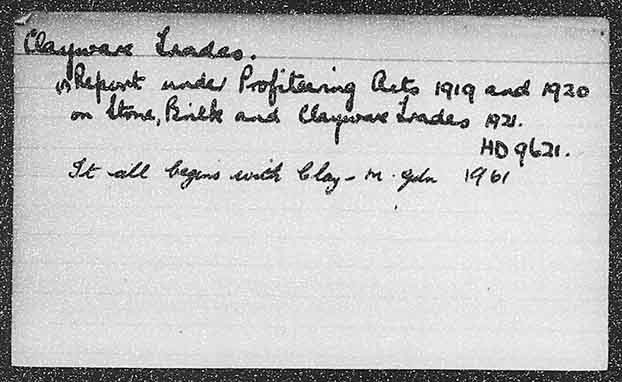 Clayware Trades.
(1) Report under Profiteering Acts 1919 and 1920
on Stone, Brick and Clayware Trades 1921.
HD 9621.
It all begins with Clay - M. 1961